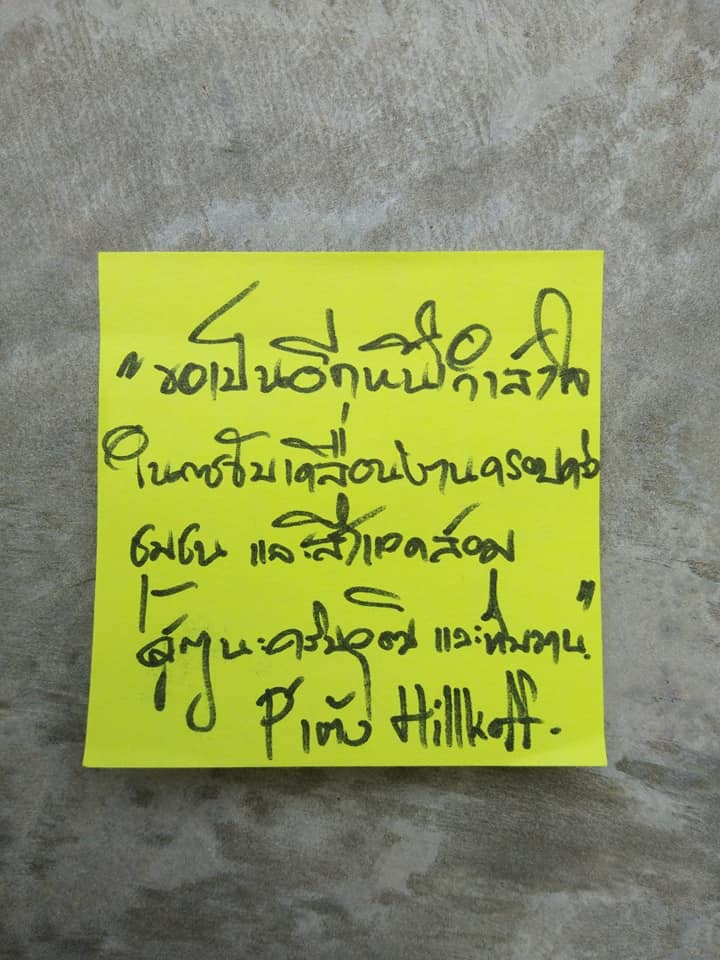 "ขอเป็นอีกหนึ่งกำลังใจ
ในการขับเคลื่อนงานครอบครัว
ชุมชน และสิ่งแวดล้อม
สู้ๆ นะครับ และทีมงาน"
พี่เต้ย Hillkoff.